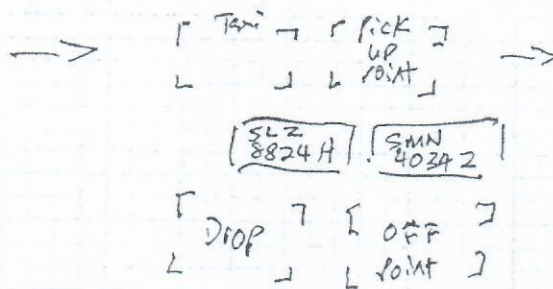 Taxi
Pick
up
Point
SLZ
8824H
SMN
4034Z
Drop
OFF
Point